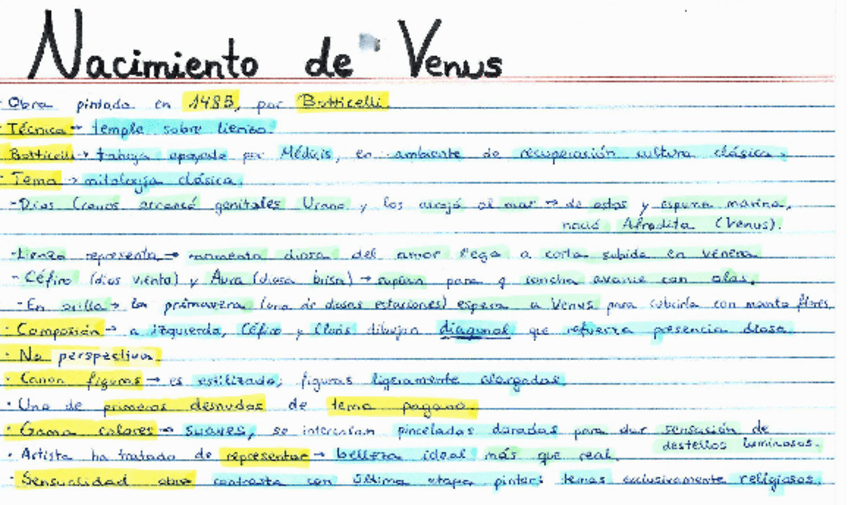 Nacimiento de Venus
· Obra pintada en 1485, por Botticelli
· Técnica → temple sobre lienzo.
Botticelli → trabaja apoyado por Médicis, en ambiente de recuperación cultura clásica.
· Tema → mitología clásica.
- Dios Cronos arrancó genitales Urano y los arrojó al mar → de estos y espuma marina,
nació Afrodita (Venus).
- Lienzo representa → momento diosa del amor llega a costa subida en venera
- Céfiro (dios viento) y Aura (diosa brisa) → soplan para q concha avance con olas.
- En orilla → la primavera (una de diosas estaciones) espera a Venus para cubrirla con manto flores
· Composición → a izquierda, Céfiro y Cloris dibujan diagonal que refuerza presencia diosa.
· No perspectiva.
· Canon figuras → es estilizado; figuras ligeramente alargadas.
· Uno de primeros desnudos de tema pagano.
· Gama colores → suaves, se intercalan pinceladas doradas para dar sensación de
destellos luminosos.
· Artista ha tratado de representar → belleza ideal más que real.
· Sensualidad obra contrasta con última etapa pintor: temas exclusivamente religiosos.